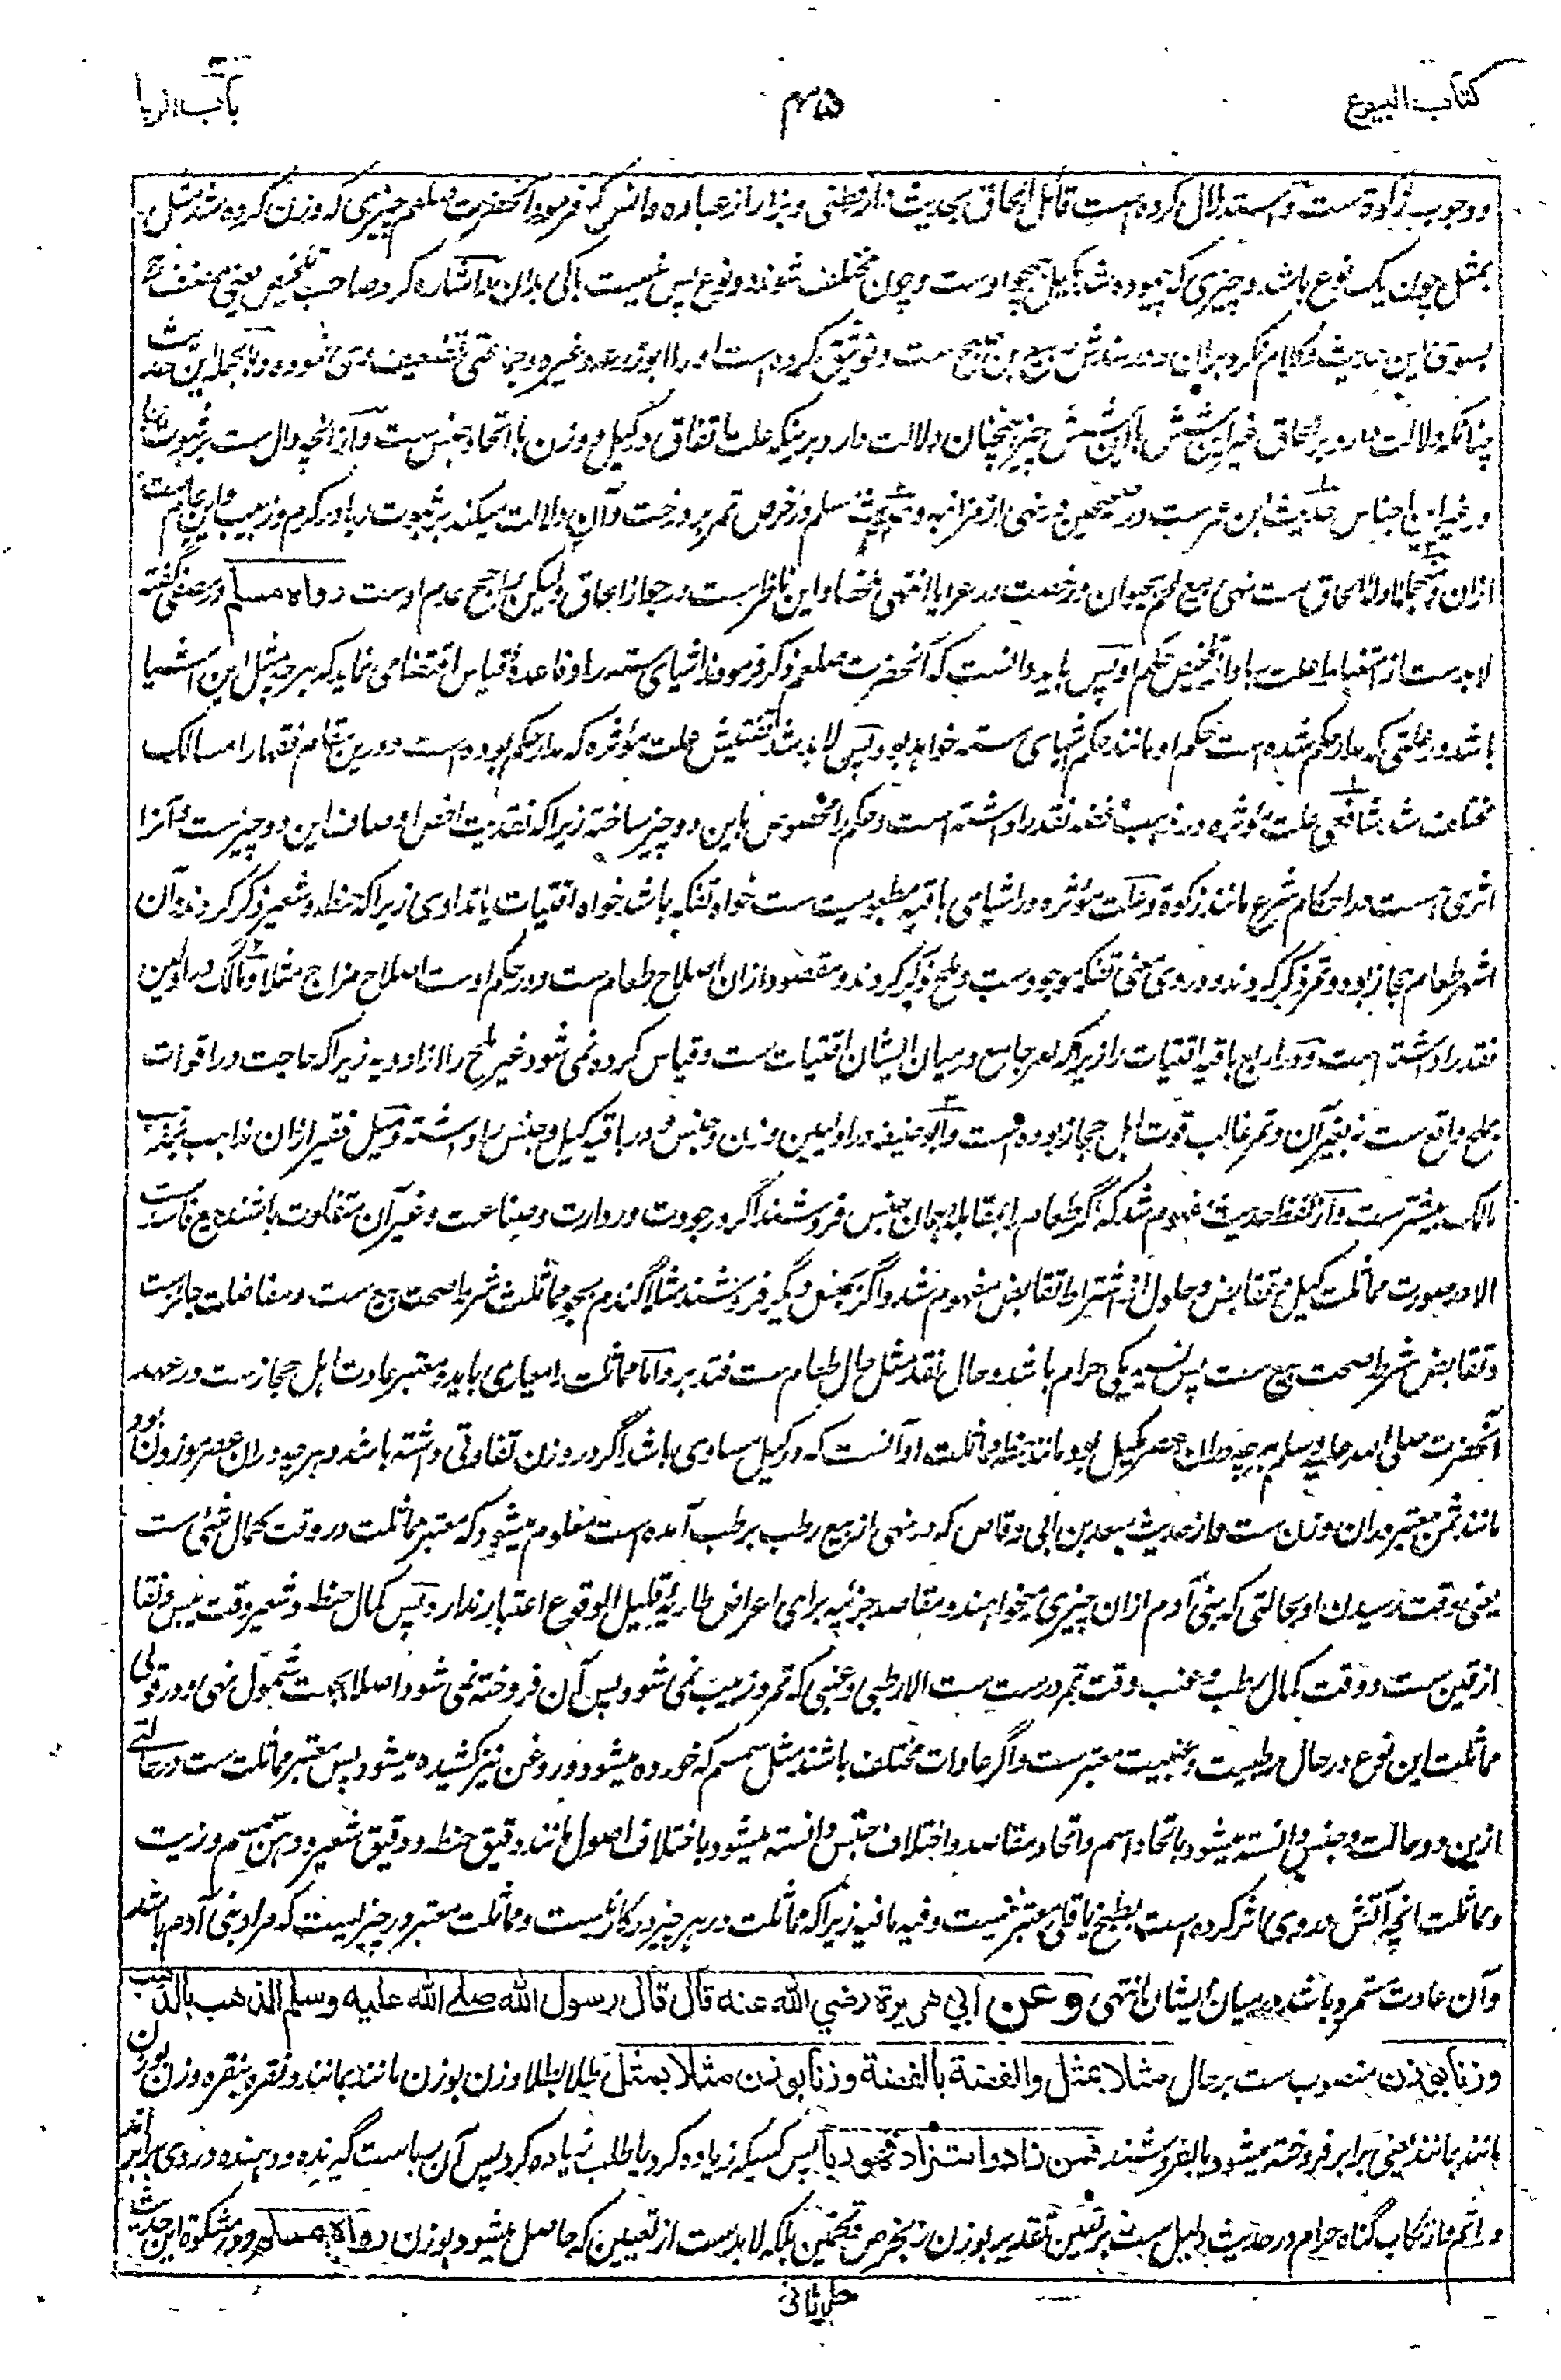 کتاب البیوع
باب الربا
و وجوب زکوة ست و استدلال کرده است قائل الحاق بحدیث دارقطنی و بزار از عباده و انس که فرمود آنحضرت صلعم چیزی که وزن کرده شد مثل
بمثل چون یک نوع باشد و چیزی که پیموده شد بکیل همچو اوست و چون مختلف شوند دو نوع پس نیست باکی بدان اشاره کرد صاحب تلخیص یعنی مصنف رح
بسوی این حدیث و کلام نکرد بران و در سندش ربیع بن صبیح ست و توثیق کرده است او را ابوزرعه و غیره و جماعتی تضعیف وی نموده و بالجمله این حدیث
چنانکه دلالت دارد بر الحاق غیر این شش باین شش چیز همچنان دلالت دارد برینکه علت اتفاق در کیل و وزن با اتحاد جنس ست و از آنچه دال ست بر ثبوت ربا
در غیر این اجناس حدیث ابن عمرست در صحیحین در نهی از مزابنه و حدیث مسلم در خرص تمر بر درخت و آن دلالت میکند بر ثبوت ربا در کرم و زبیب و این عام ست
ازان و منجمله ادله الحاق ست نهی بیع لحم بحیوان و رخصت در عرایا انتهی و این ناظرست در جواز الحاق ولیکن راجح عدم اوست رواه مسلم و در مصفی گفته
لابدست از استنباط علت ربا و از تلخیص حکم او پس باید دانست که آنحضرت صلعم ذکر فرموده اشیای سته را و قاعدهٔ قیاس اقتضا می نماید که هر چه مثل این اشیا
باشد در علتی که مدار حکم شده است حکم او مانند حکم شیهای سته خواهد بود پس لابد شد تفتیش علت مؤثره که مدار حکم بوده است و درین مقام فقها را مسالک
مختلفه شد شافعی علت مؤثره در ذهب و فضه نقد را داشته است و حکم را مخصوص باین دو چیز ساخته زیرا که نقدیت اخص اوصاف این دو چیز ست و آنرا
اثری هست در احکام شرع مانند زکوة و علت مؤثره در اشیای باقیه مطعومیت ست خواه تفکه باشد خواه اقتیات یا تداوی زیرا که حنطه و شعیر ذکر کردند و آن
اشهر طعام حجاز بوده و تمر ذکر کردند و در وی معنی تفکه موجودست و ملح ذکر کردند و مقصود ازان اصلاح طعام ست و در حکم اوست اصلاح مزاج مثلا و مالک در اولین
نقد را داشته است و در اربع باقیه اقتیات را زیرا که امر جامع درمیان ایشان اقتیات ست و قیاس کرده نمی شود غیر ملح را از ادویه زیرا که حاجت در اقوات
بملح واقع ست نه بغیر آن و تمر غالب قوت اهل حجاز بوده است و ابوحنیفه در اولین وزن و جنس و در باقیه کیل و جنس را داشته و میل فقیر ازان مذاهب بمذهب
مالک بیشترست و از لفظ حدیث مفهوم شد که اگر طعام را بمقابله همان جنس فروشند اگر در جودت و ردارت و صناعت و غیر آن متفاوت باشند بیع فاسدست
الا در صورت مماثلت کیل و تقابض و حلول از اشتراط تقابض مفهوم شد و اگر بجنس دیگر فروشند مثلا گندم بجو مماثلت شرط صحت بیع نیست و مفاضلت جائزست
و تقابض شرط صحت بیع ست پس نسیه یکی حرام باشد و حال نقد مثل حال طعام ست فتدبر و اما مماثلت را معیاری باید و معتبر عادت اهل حجازست در عهد
آنحضرت صلی الله علیه وسلم هر چه دران عصر مکیل بود مانند حنطه مماثلت او آنست که در کیل مساوی باشد اگر در وزن تفاوتی داشته باشد و هر چه دران عصر موزون بود
مانند ثمن معتبر دران وزن ست و از حدیث سعد بن ابی وقاص که در نهی از بیع رطب برطب آمده است معلوم میشود که معتبر مماثلت در وقت کمال شئی ست
یعنی وقت رسیدن او بحالتی که بنی آدم ازان چیزی میخواهند و مقاصد جزئیه برای اعراض طاریه قلیل الوقوع اعتبار ندارد پس کمال حنطه و شعیر وقت یبس و نقا
از تبن ست و وقت کمال رطب و عنب وقت تمر درست ست الا رطبی و عنبی که تمر و زبیب نمی شود پس آن فروخته نمی شود اصلا بجهت شمول نهی و در قولی
مماثلت این نوع در حال رطبیت و عنبیت معتبرست و اگر عادات مختلف باشند مثل سمسم که خورده میشود و روغن نیز کشیده میشود پس معتبر مماثلت ست در حالتی
ازین دو حالت و جنس دانسته میشود باتحاد اسم و اتحاد مقاصد و اختلاف جنس دانسته میشود باختلاف اصول مانند دقیق حنطه و دقیق شعیر و دهن سمسم و زیت
و مماثلت آنچه آتش در وی اثر کرده است بطبخ یا قلی معتبر نیست و فیه ما فیه زیرا که مماثلت در هر چیز درکارست و مماثلت معتبر در چیزیست که مراد بنی آدم باشد
و آن عادت مستمره باشد درمیان ایشان انتهی وعن ابي هريرة رضي الله عنه قال قال رسول الله صلے الله عليه وسلم الذهب بالذهب
وزنا بوزن منصوب ست بر حال مثلا بمثل والفضة بالفضة وزنا بوزن مثلا بمثل طلا بطلا وزن بوزن مانند بمانند و نقره بنقره وزن بوزن
مانند بمانند یعنی برابر فروخته میشود یا بفروشند فمن زاد او استزاد فهو ربا پس کسیکه زیاده کرد یا طلب زیاده کرد پس آن رباست گیرنده و دهنده در وی برابراند
در اثم و ارتکاب گناه حرام در حدیث دلیل ست بر تعیین تقدیر بوزن نه بخرص و تخمین بلکه لابدست از تعیین که حاصل میشود بوزن رواه مسلم و در مشکوة این حدیث
جلد ثانی